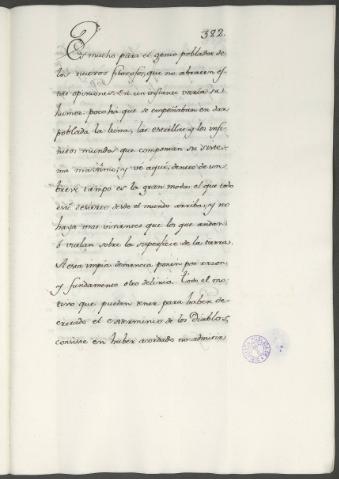 382.
Es mucho para el genio poblador de
los nuevos filosofos, que no abracen es-
tas opiniones. En un instante varía su
humor. poco há que se empeñaban en dar
poblada la luna, las estrellas, y los infi-
nitos mundos que componian su siste-
ma maximo, y ve aqui, dentro de un
breve tiempo es la gran moda el que todo
esté desierto desde el mundo arriba, y no
haya mas vivientes que los que andan
ó vuelan sobre la superficie de la tierra.
A esta impia demencia ponen por razon
y fundamento otro delirio. Todo el mo-
tivo que pueden tener para haber de-
cretado el exterminio de los Diablos,
consiste en haber acordado no admitir